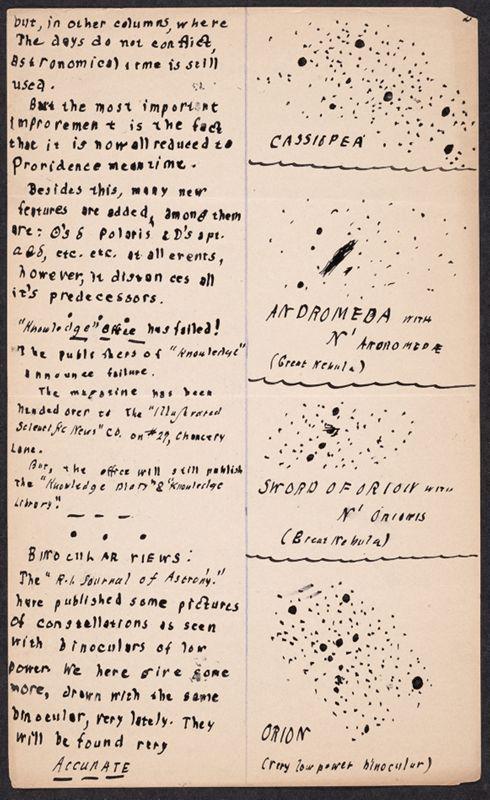 but, in other columns, where
The days do not conflict,
astronomical time is still
used.
But the most important
improvement is the fact
that it is now all reduced to
Providence meantime.
Besides this, many new
features are added, among them
are: O's & Polaris & D's apt.
etc. etc. at all events,
however, it distances all
it's predecessors.
"Knowledge" Office has failed!
The publishers of "Knowledge"
announce failure.
The magazine has been
handed over to The "Illustrated
Scientific News" CO. on #29, Chancery
Lane.
But, the office will still publish
the "Knowledge Diary" & "Knowledge
Library".
BINOCULAR VIEWS:
The "R.I. Journal of Astrony."
have published some pictures
of constellations as seen
with binoculars of low
power. We here give some
more, drawn with the same
binocular, very lately. They
will be found very
ACCURATE
CASSIOPEA
ANDROMEDA WITH
N' ANDROMEDÆ
(Great Nebula)
SWORD OF ORION WITH
N' ORIONIS
(Great Nebula)
ORION
(very low power binocular)